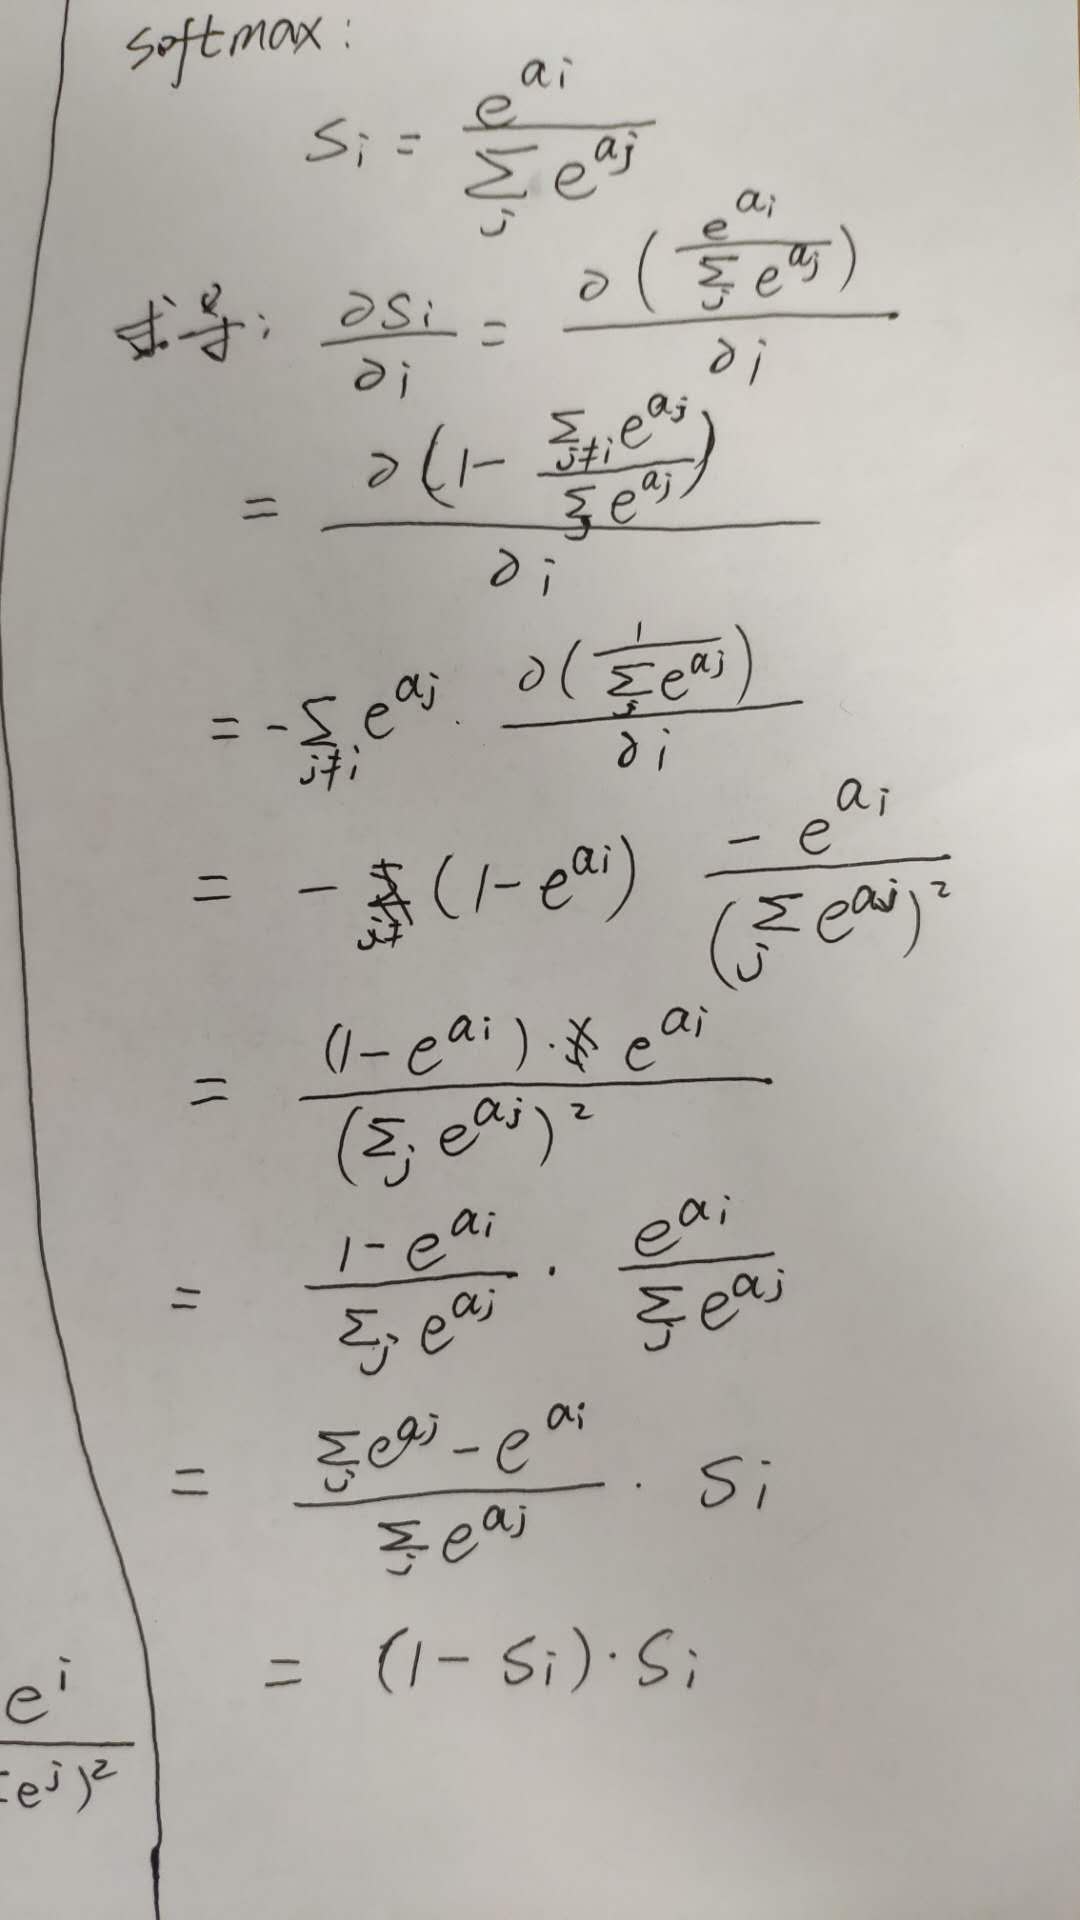 softmax:
Si = e^ai / Σ_j e^aj
求导: ∂Si / ∂i = ∂( e^ai / Σ_j e^aj ) / ∂i
= ∂( 1 - Σ_j≠i e^aj / Σ_j e^aj ) / ∂i
= - Σ_j≠i e^aj · ∂( 1 / Σ_j e^aj ) / ∂i
= - (1 - e^ai) - e^ai / ( Σ_j e^aj )²
= (1 - e^ai) · e^ai / ( Σ_j e^aj )²
= 1 - e^ai / Σ_j e^aj · e^ai / Σ_j e^aj
= Σ_j e^aj - e^ai / Σ_j e^aj · Si
= (1 - Si) · Si
e^i / e^j )²